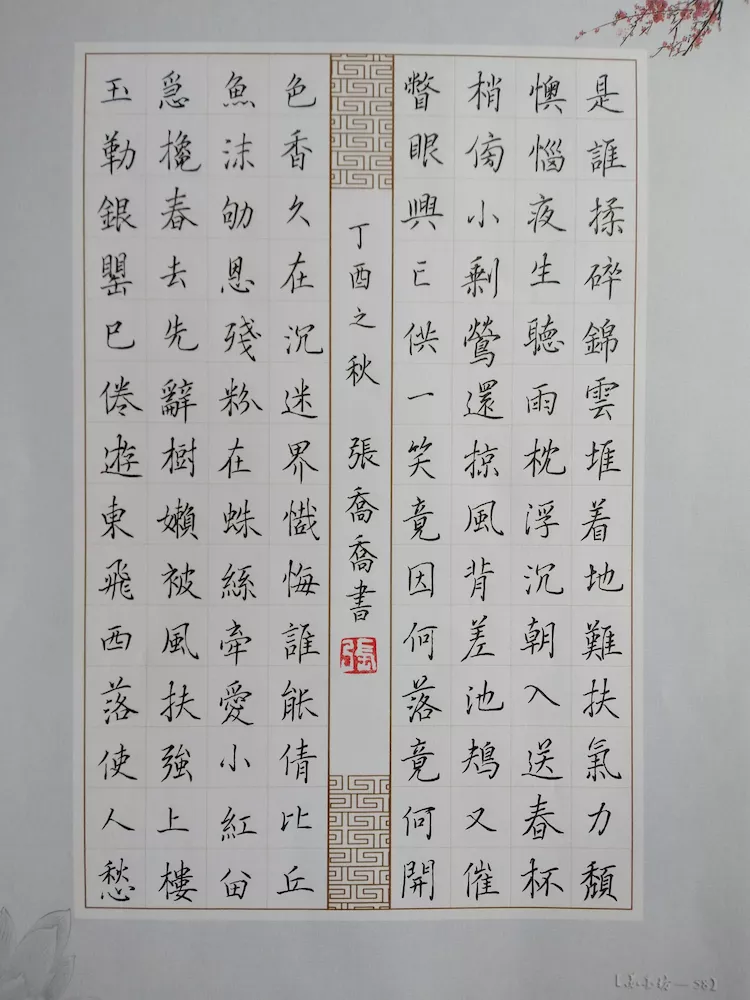 是誰揉碎錦雲堆着地難扶氣力頹
懊惱夜生聽雨枕浮沉朝入送春杯
梢傍小剩鶯還掠風背差池鴂又催
瞥眼興亡供一笑竟因何落竟何開
丁酉之秋 張喬喬書
張
色香久在沉迷界懺悔誰能倩比丘
魚沫劬恩殘粉在蛛絲牽愛小紅留
急攙春去先辭樹懶被風扶強上樓
玉勒銀罌已倦遊東飛西落使人愁